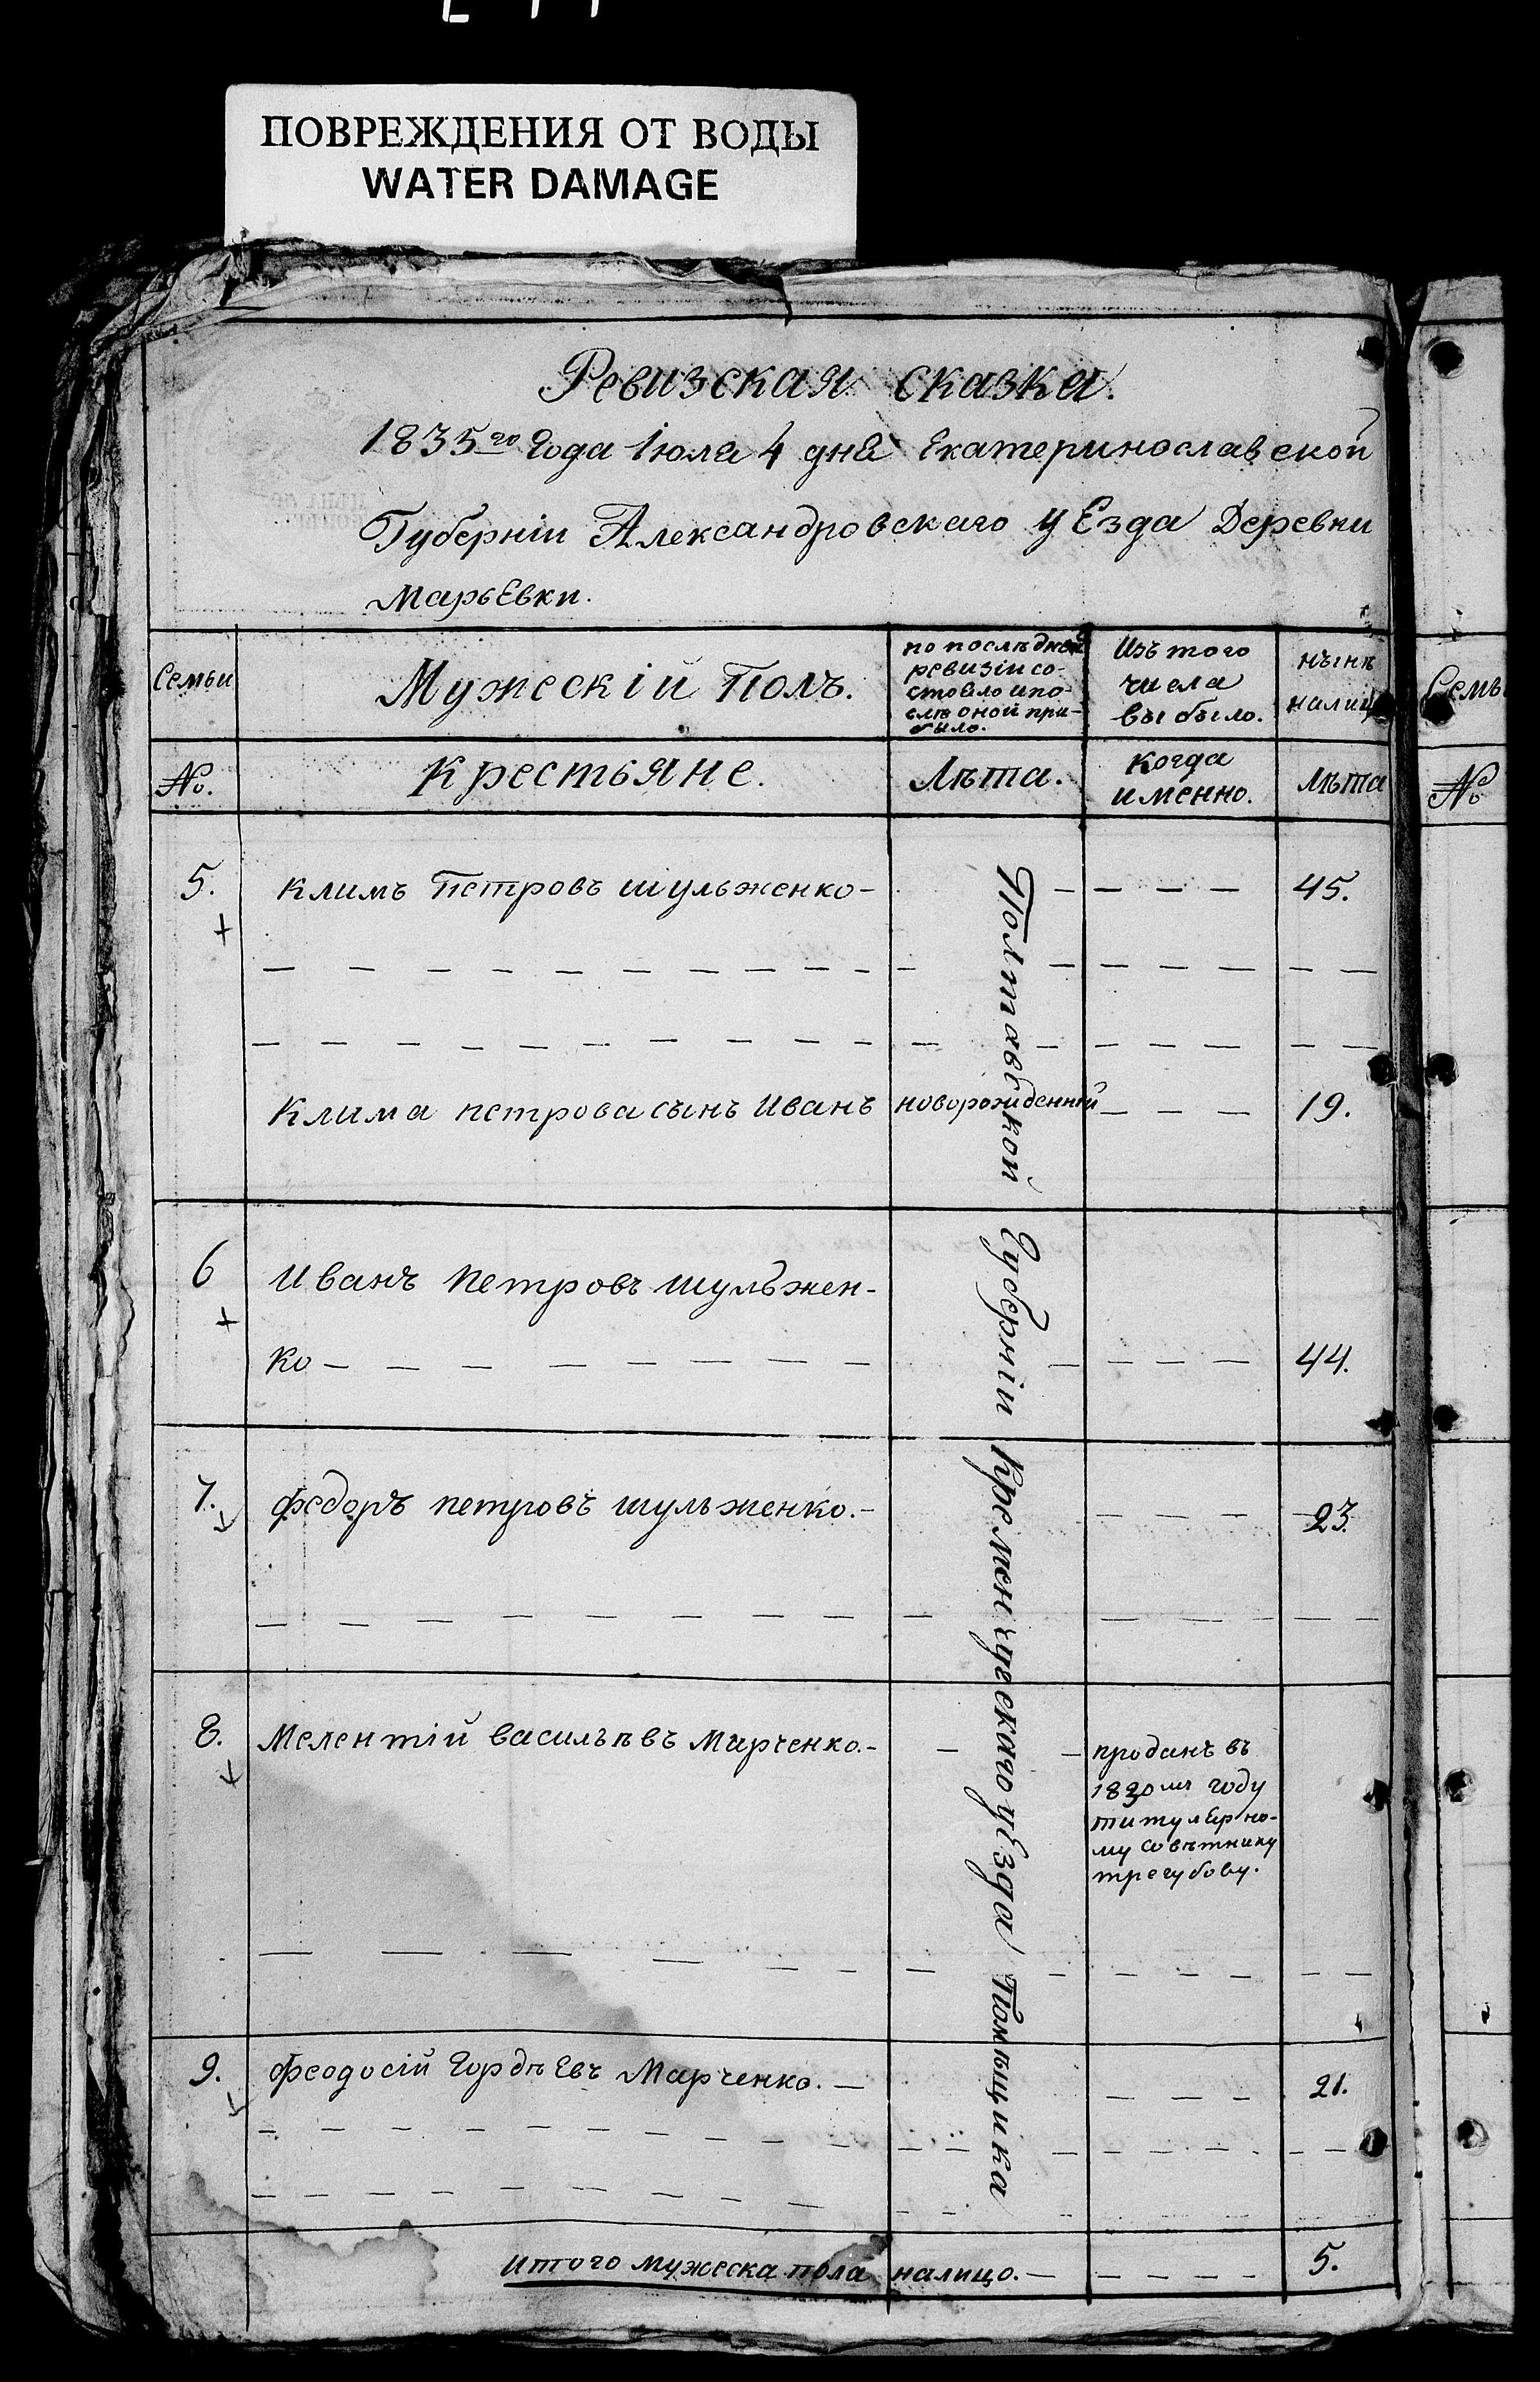 ПОВРЕЖДЕНИЯ ОТ ВОДЫ
WATER DAMAGE
Ревизская сказка.
1835го Года Іюля 4 дня Екатеринославской
Губерніи Александровскаго уЕзда Деревни
МарьЕвки.
Семьи
Мужескій Полъ.
по послѣдней
ревизіи со-
стояло и по-
слѣ оной при-
было.
Изъ того
числа
выбыло.
нынѣ
налицо
Семьи
№.
Крестьяне.
Лѣта.
когда
именно.
Лѣта
№
5.
Климъ Петровъ шульженко —
45.
Клима петрова сынъ Иванъ
новорожденный
19.
6
Иванъ Петровъ шульжен-
ко
44.
7.
Федоръ петровъ шульженко.
23.
8.
Мелентій васильѣвъ Марченко.
проданъ въ
1830мъ году
титуляръно-
му совѣтнику
трегубову.
9.
Феодосій ГордѣЕвъ Марченко.
21.
Полтавской Губерніи Кременчугскаго уЕзда Помѣщика
итого мужеска пола налицо.
5.